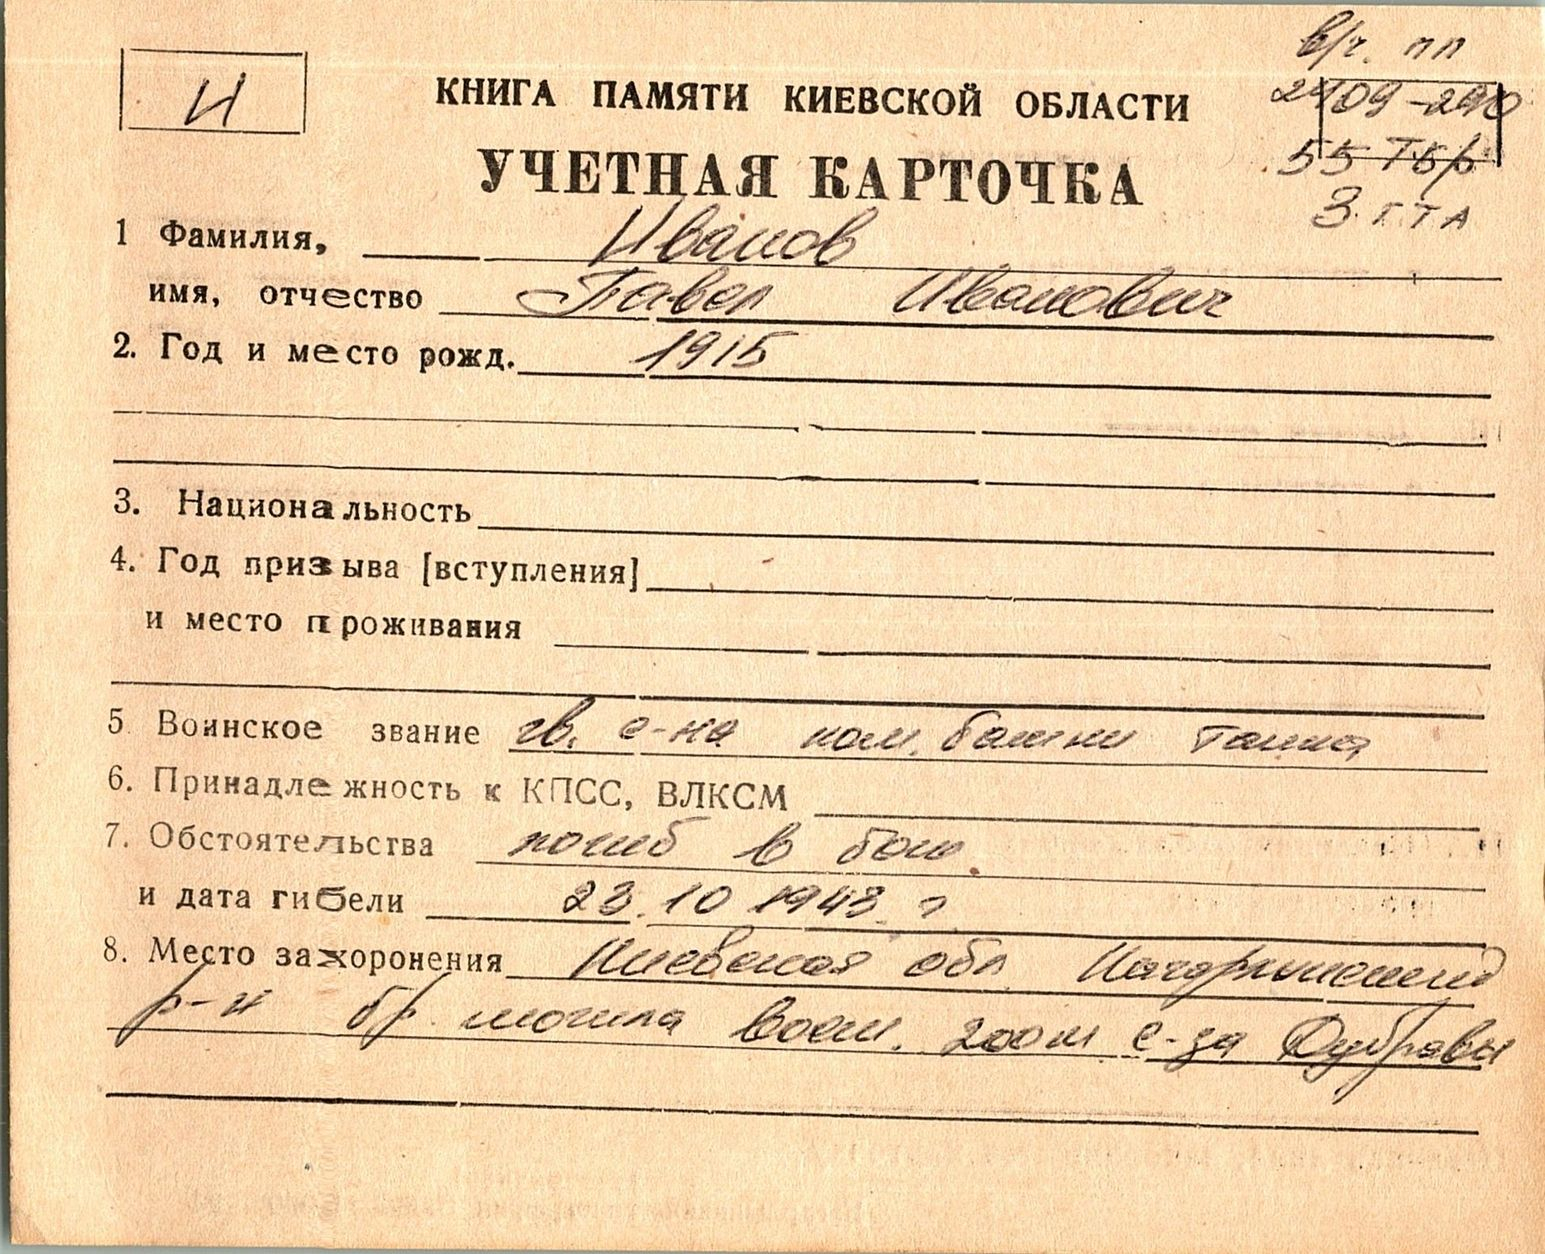 И
КНИГА ПАМЯТИ КИЕВСКОЙ ОБЛАСТИ
УЧЕТНАЯ КАРТОЧКА
в/ч. пп
55 Тбр
3 г. ТА
1 Фамилия, Иванов
имя, отчество Павел Иванович
2. Год и место рожд. 1915
3. Национальность
4. Год призыва [вступления]
и место проживания
5 Воинское звание гв. с-на ком. башни танка
6. Принадлежность к КПСС, ВЛКСМ
7. Обстоятельства погиб в бою
и дата гибели 23.10 1943 г
8. Место захоронения Киевская обл
р-н бр. могила вост. 200 м с-за Дубравы